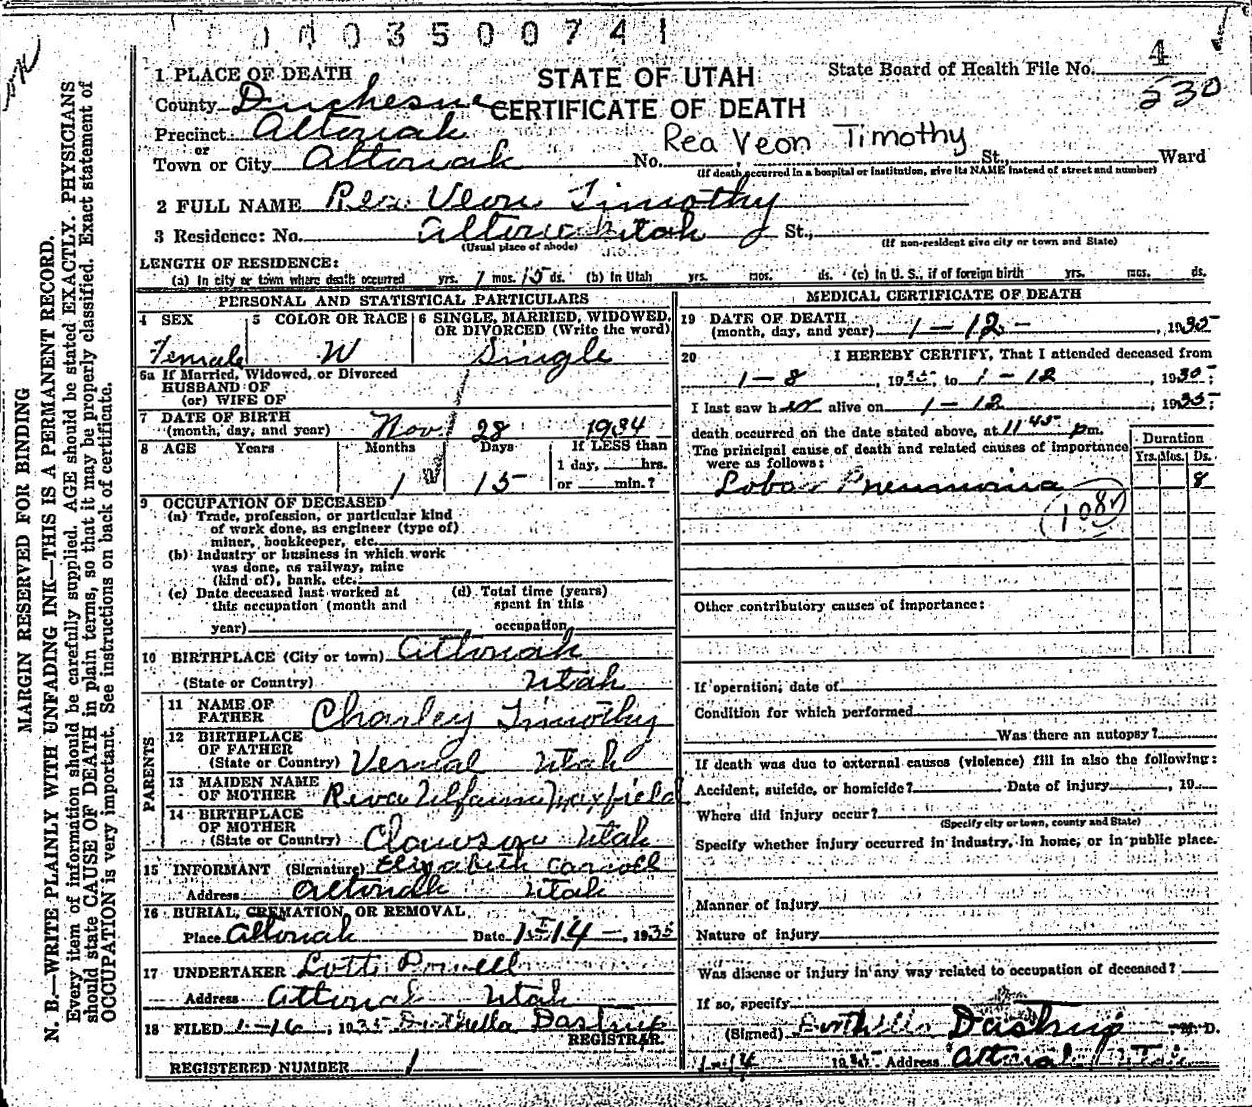 0403500741
1 PLACE OF DEATH
STATE OF UTAH
State Board of Health File No. 4
County Duchesne
CERTIFICATE OF DEATH
530
Precinct Altonah
Rea Veon Timothy
or
Town or City Altonah No. St., Ward
(If death occurred in a hospital or institution, give its NAME instead of street and number)
2 FULL NAME Rea Veon Timothy
3 Residence: No. Altonah Utah St.,
(Usual place of abode) (If non-resident give city or town and State)
LENGTH OF RESIDENCE:
(a) In city or town where death occurred yrs. 1 mos. 15 ds. (b) in Utah yrs. mos. ds. (c) in U. S., if of foreign birth yrs. mos. ds.
PERSONAL AND STATISTICAL PARTICULARS
4 SEX 5 COLOR OR RACE 6 SINGLE, MARRIED, WIDOWED,
OR DIVORCED (Write the word)
Female W Single
6a If Married, Widowed, or Divorced
HUSBAND OF
(or) WIFE OF
7 DATE OF BIRTH
(month, day, and year) Nov 28 1934
8 AGE Years Months Days If LESS than
1 day, hrs.
1 15 or min.?
9 OCCUPATION OF DECEASED
(a) Trade, profession, or particular kind
of work done, as engineer (type of)
miner, bookkeeper, etc.
(b) Industry or business in which work
was done, as railway, mine
(kind of), bank, etc.
(c) Date deceased last worked at (d) Total time (years)
this occupation (month and spent in this
year) occupation
10 BIRTHPLACE (City or town) Altonah
(State or Country) Utah
PARENTS
11 NAME OF
FATHER Charley Timothy
12 BIRTHPLACE
OF FATHER
(State or Country) Vernal Utah
13 MAIDEN NAME
OF MOTHER Reva Maxfield
14 BIRTHPLACE
OF MOTHER
(State or Country) Clawson Utah
15 INFORMANT (Signature) Elizabeth Carroll
Address Altonah Utah
16 BURIAL, CREMATION, OR REMOVAL
Place Altonah Date 1-14-, 1935
17 UNDERTAKER Powell
Address Altonah Utah
18 FILED 1-16, 1935 Dastrup
REGISTRAR.
REGISTERED NUMBER 1
MEDICAL CERTIFICATE OF DEATH
19 DATE OF DEATH
(month, day, and year) 1-12-, 1935
20 I HEREBY CERTIFY, That I attended deceased from
1-8, 1935, to 1-12, 1935;
I last saw her alive on 1-12, 1935;
death occurred on the date stated above, at 11 45 pm.
The principal cause of death and related causes of importance
were as follows:
Duration
Yrs. Mos. Ds.
Lobar Pneumonia 8
108
Other contributory causes of importance:
If operation, date of
Condition for which performed
Was there an autopsy?
If death was due to external causes (violence) fill in also the following:
Accident, suicide, or homicide? Date of injury, 19
Where did injury occur?
(Specify city or town, county and State)
Specify whether injury occurred in industry, in home, or in public place.
Manner of injury
Nature of injury
Was disease or injury in any way related to occupation of deceased?
If so, specify
(Signed) Dastrup M. D.
1-14 1935 Address Altonah Utah
MARGIN RESERVED FOR BINDING
N. B.—WRITE PLAINLY WITH UNFADING INK—THIS IS A PERMANENT RECORD.
Every item of information should be carefully supplied. AGE should be stated EXACTLY. PHYSICIANS
should state CAUSE OF DEATH in plain terms, so that it may be properly classified. Exact statement of
OCCUPATION is very important. See instructions on back of certificate.